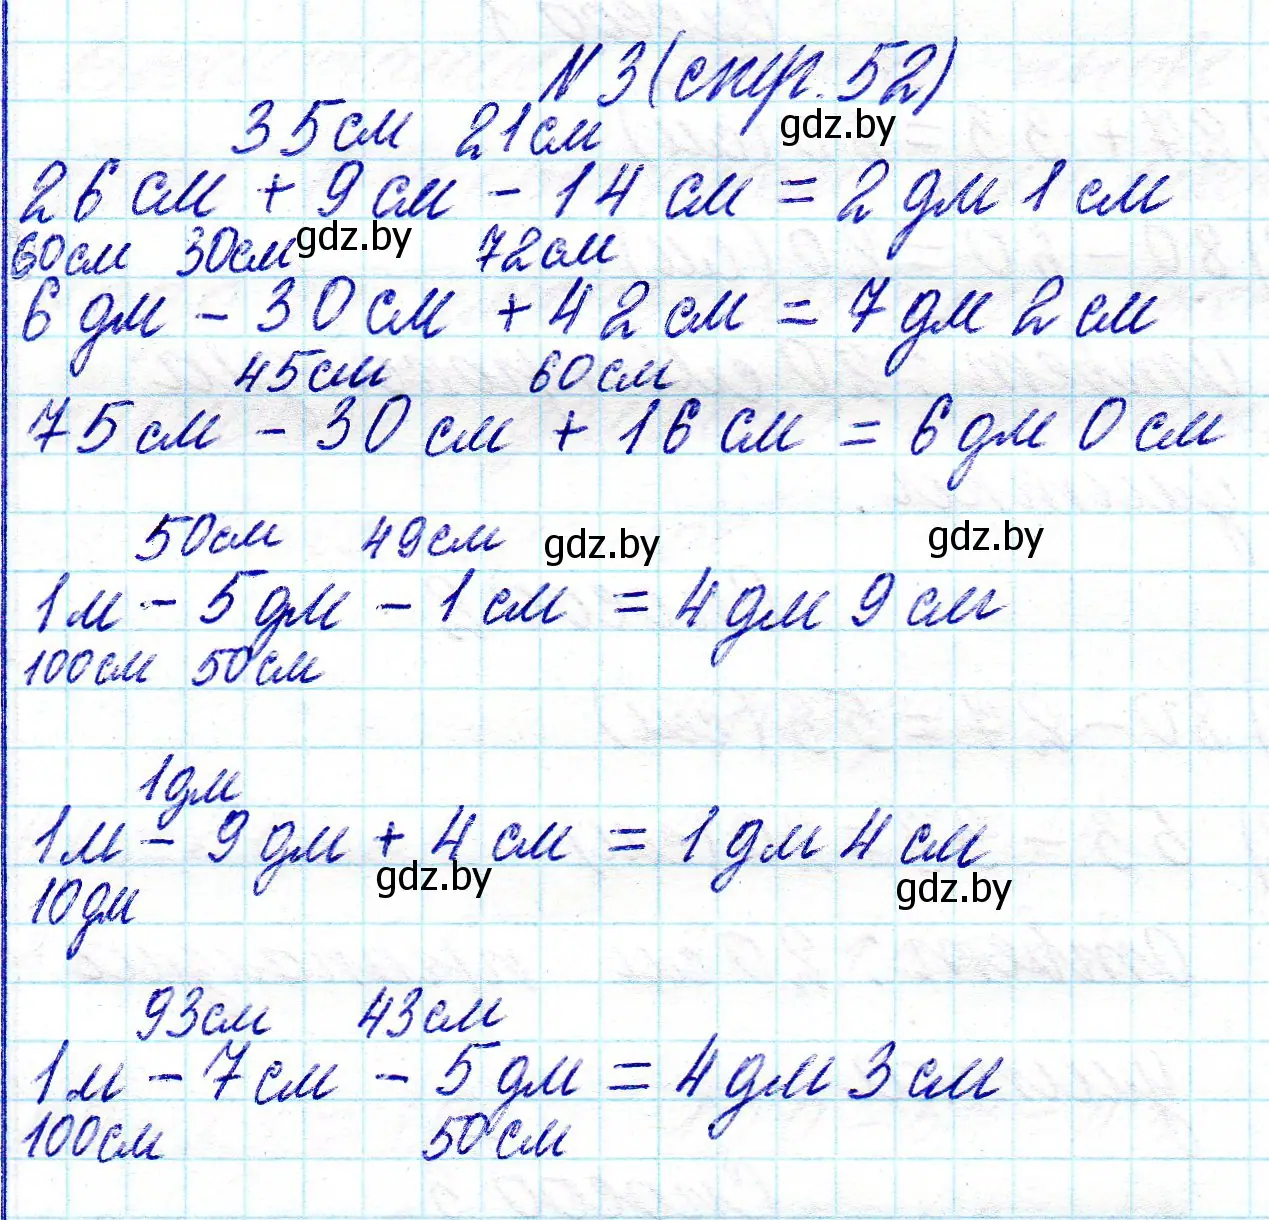 №3 (стр. 52)
gdz.by
35см 21см
26см + 9см - 14 см = 2 дм 1 см
gdz.by
60см 30см 72см
6 дм - 30 см + 42 см = 7 дм 2 см
45см 60см
75см - 30 см + 16 см = 6 дм 0 см
50см 49см
gdz.by gdz.by
1м - 5 дм - 1 см = 4 дм 9 см
100см 50см
1дм
1м - 9 дм + 4 см = 1 дм 4 см
gdz.by gdz.by
10дм
93см 43см
1м - 7см - 5 дм = 4 дм 3 см
100см 50см